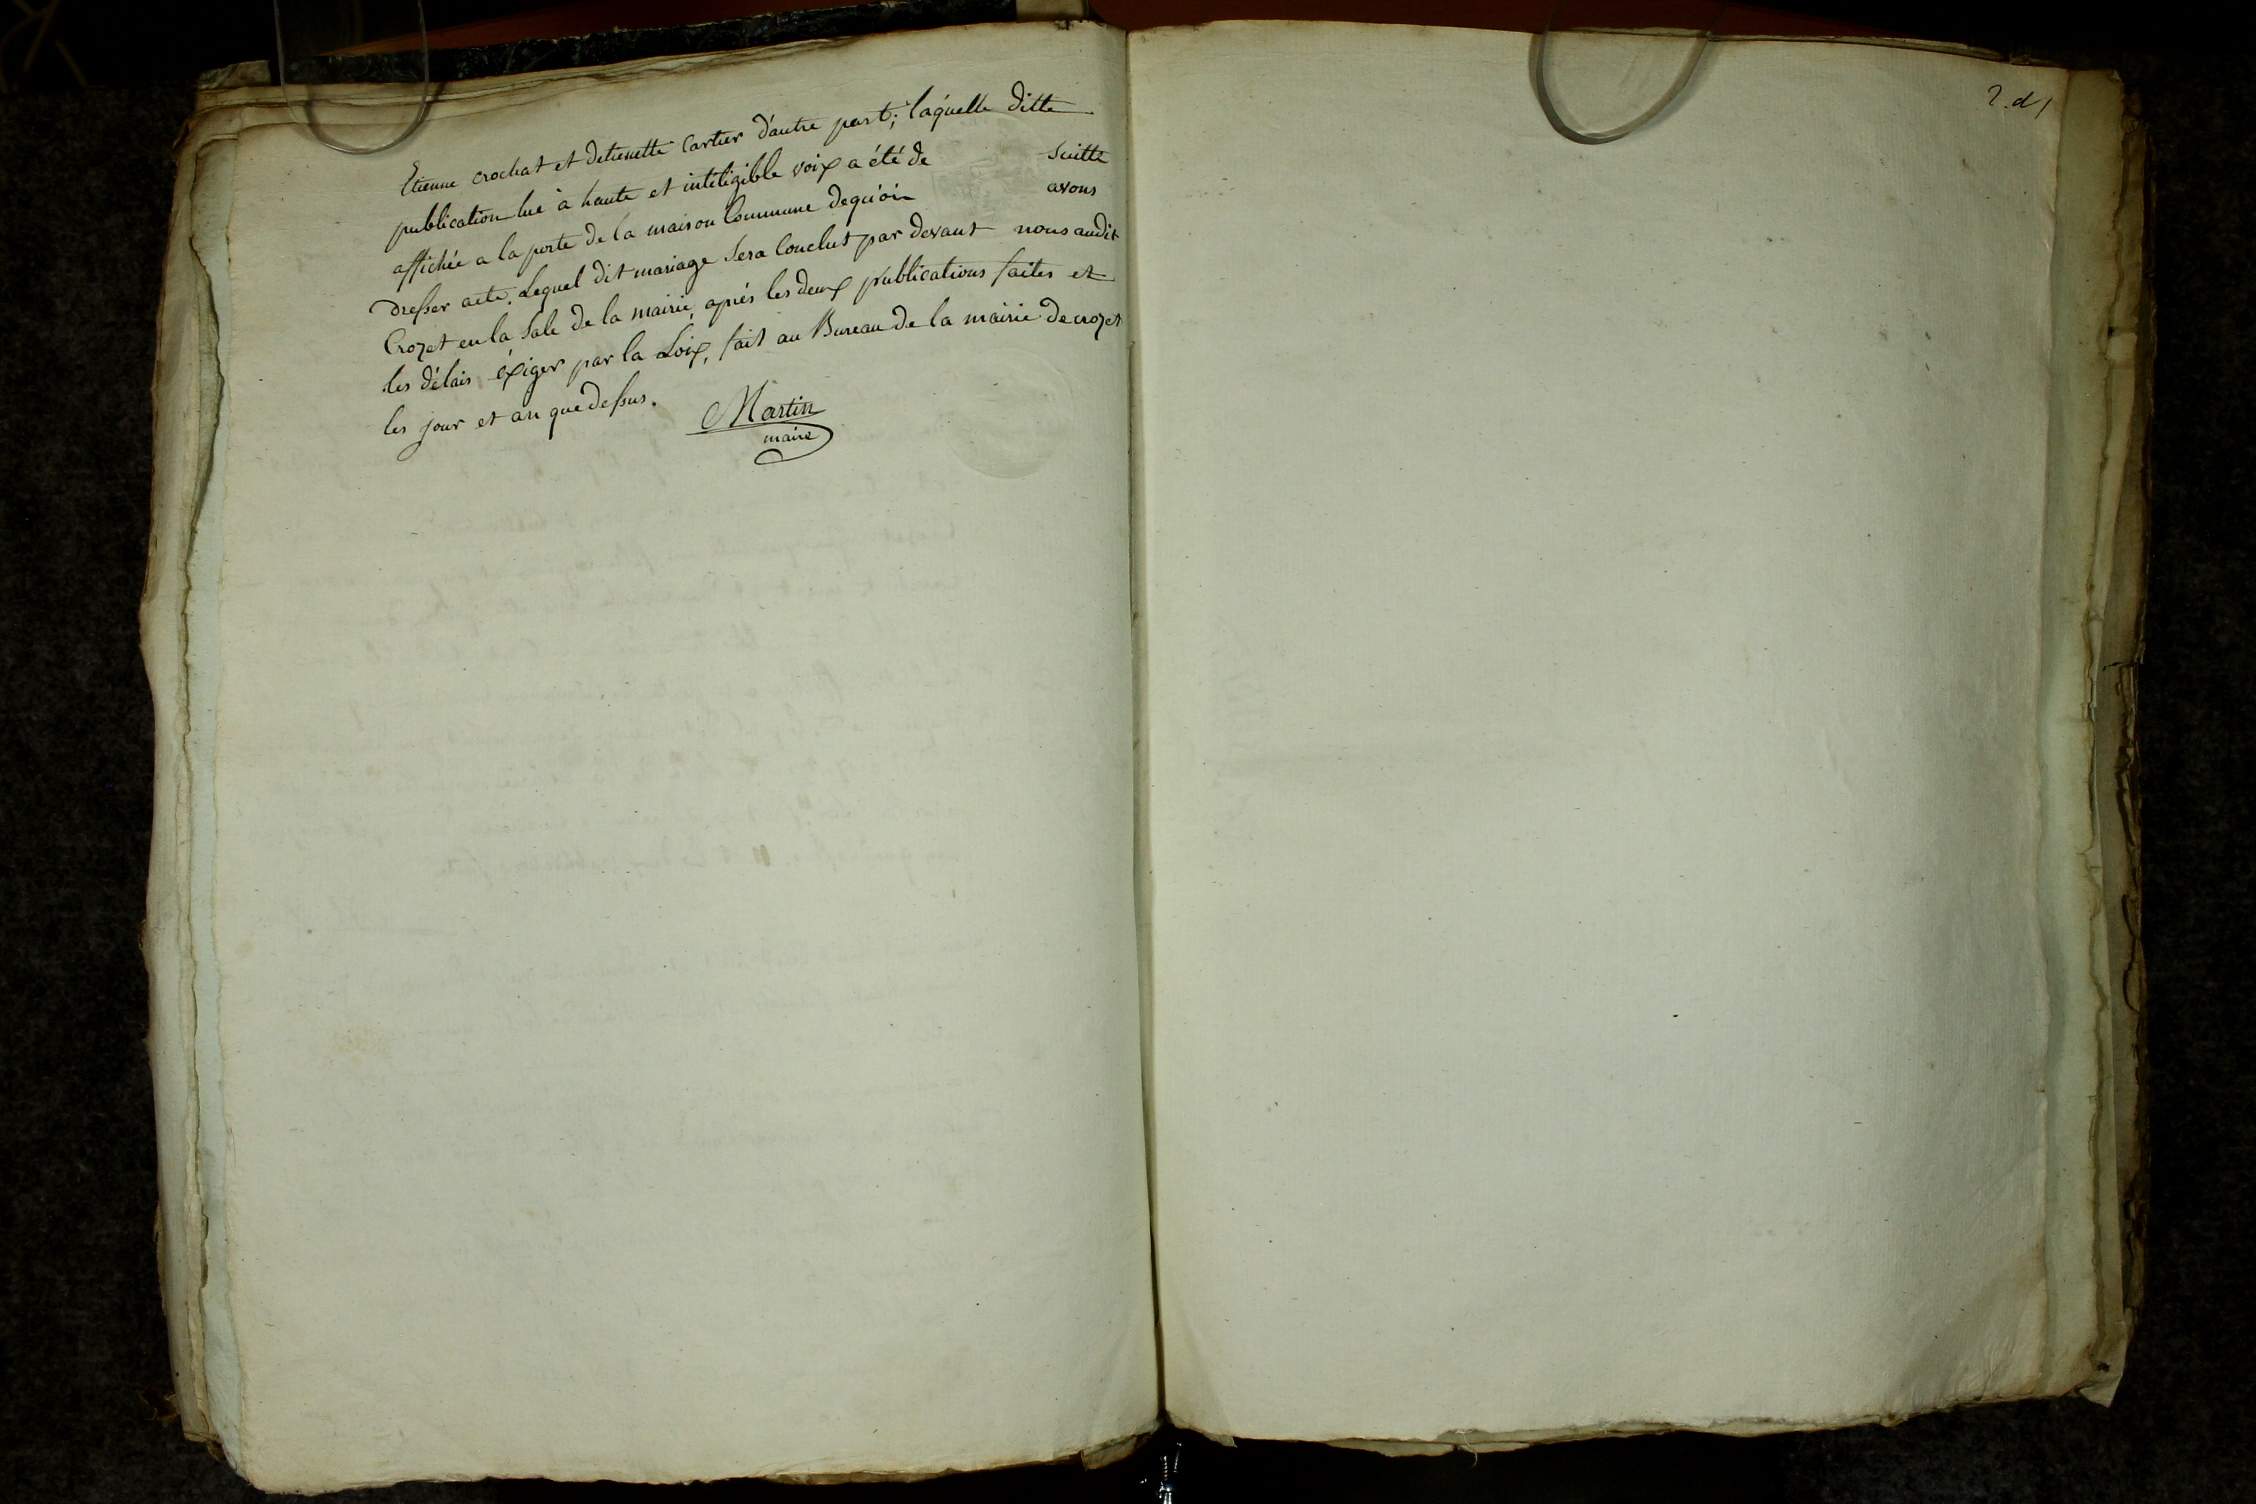 Etienne crochat et detienette Cartier d'autre part; láquelle ditte
publication lue à haute et inteligible voix a été de suitte
affichée a la porte de la maison Commune dequ'oi avons
dresser acte. Lequel dit mariage Sera Conclut par devant nous audit
Crozet en la Sale de la mairie, aprés les deux publications faites et
les délais éxiger par la Loix, fait au Bureau de la mairie de crozet
les jour et an que dessus.
Martin
maire